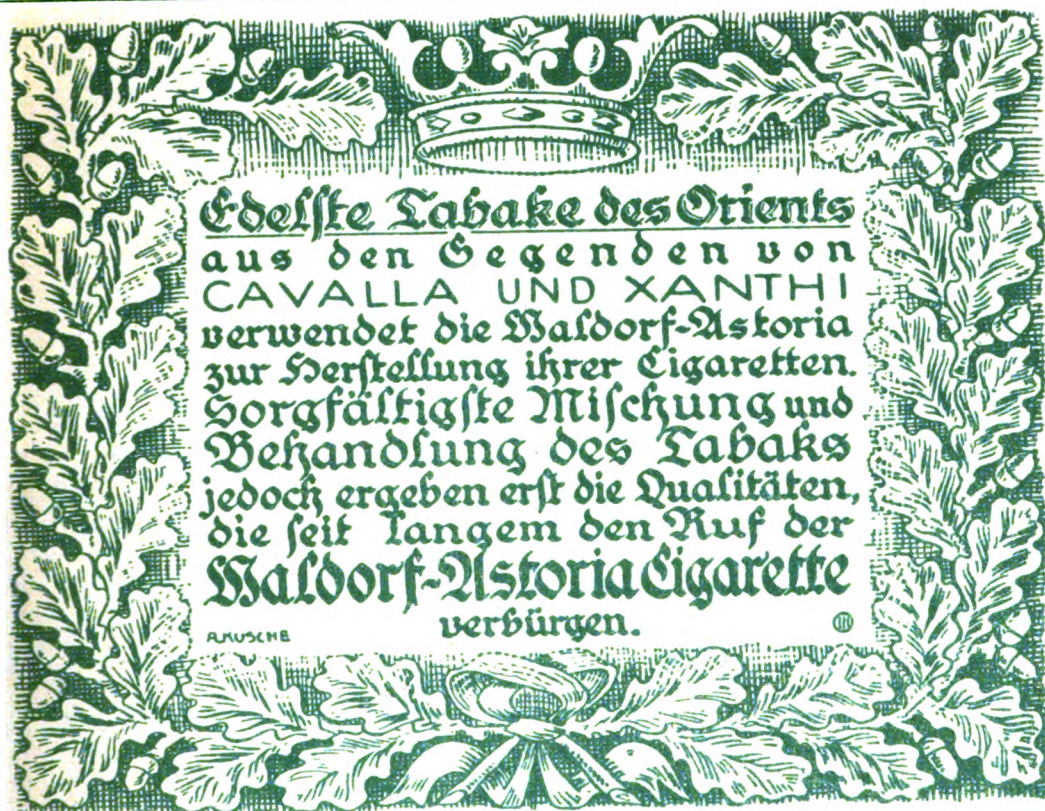 Edelste Tabake des Orients
aus den Gegenden von
CAVALLA UND XANTHI
verwendet die Waldorf-Astoria
zur Herstellung ihrer Cigaretten.
Sorgfältigste Mischung und
Behandlung des Tabaks
jedoch ergeben erst die Qualitäten,
die seit langem den Ruf der
Waldorf-Astoria Cigarette
verbürgen.
A.KUSCHE